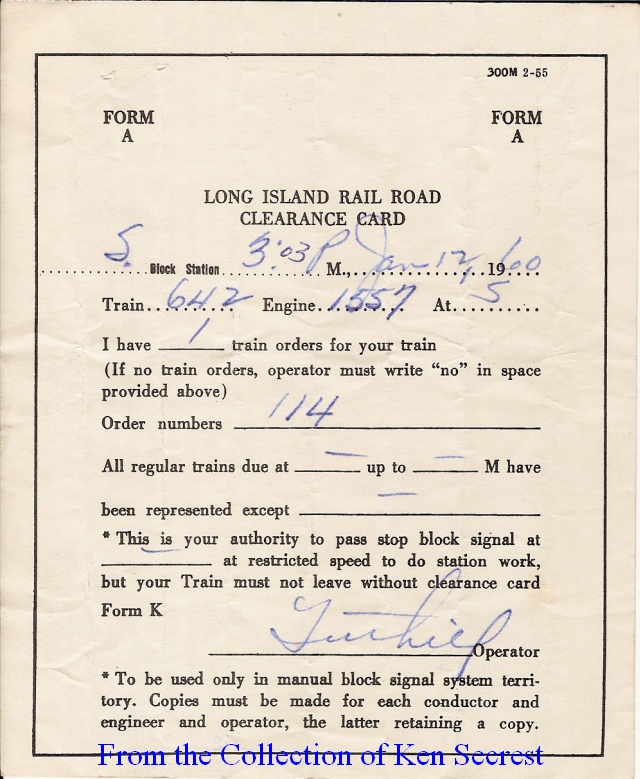 300M 2-55
FORM A FORM A
LONG ISLAND RAIL ROAD
CLEARANCE CARD
S. Block Station 3:03 P M., Jan 12, 1960
Train 642 Engine 1557 At S
I have 1 train orders for your train
(If no train orders, operator must write "no" in space
provided above)
Order numbers 114
All regular trains due at — up to — M have
been represented except —
* This is your authority to pass stop block signal at
— at restricted speed to do station work,
but your Train must not leave without clearance card
Form K
Operator
* To be used only in manual block signal system terri-
tory. Copies must be made for each conductor and
engineer and operator, the latter retaining a copy.
From the Collection of Ken Secrest